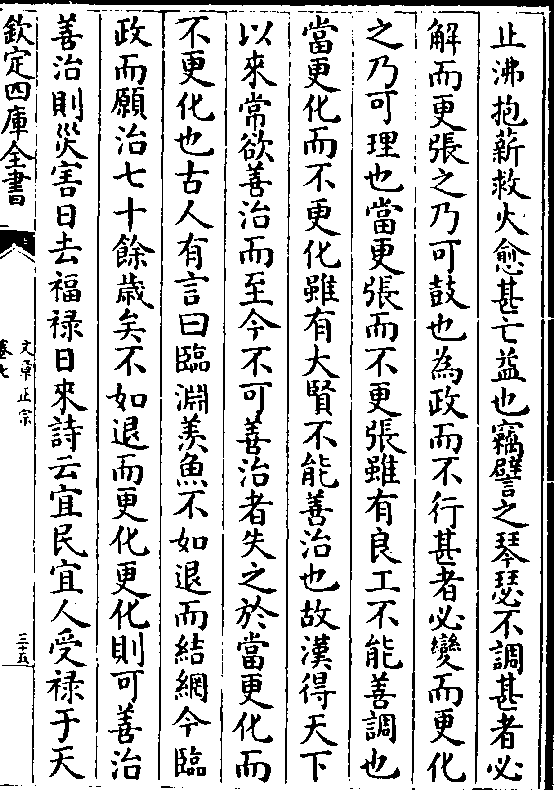 止沸抱薪救火愈甚亡益也竊譬之琴瑟不調甚者必
解而更張之乃可鼓也為政而不行甚者必變而更化
之乃可理也當更張而不更張雖有良工不能善調也
當更化而不更化雖有大賢不能善治也故漢得天下
以來常欲善治而至今不可善治者失之於當更化而
不更化也古人有言曰臨淵羡魚不如退而結網今臨
政而願治七十餘歲矣不如退而更化更化則可善治
善治則災害日去福禄日來詩云宜民宜人受禄于天
欽定四庫全書
文章正宗
卷七
三十五